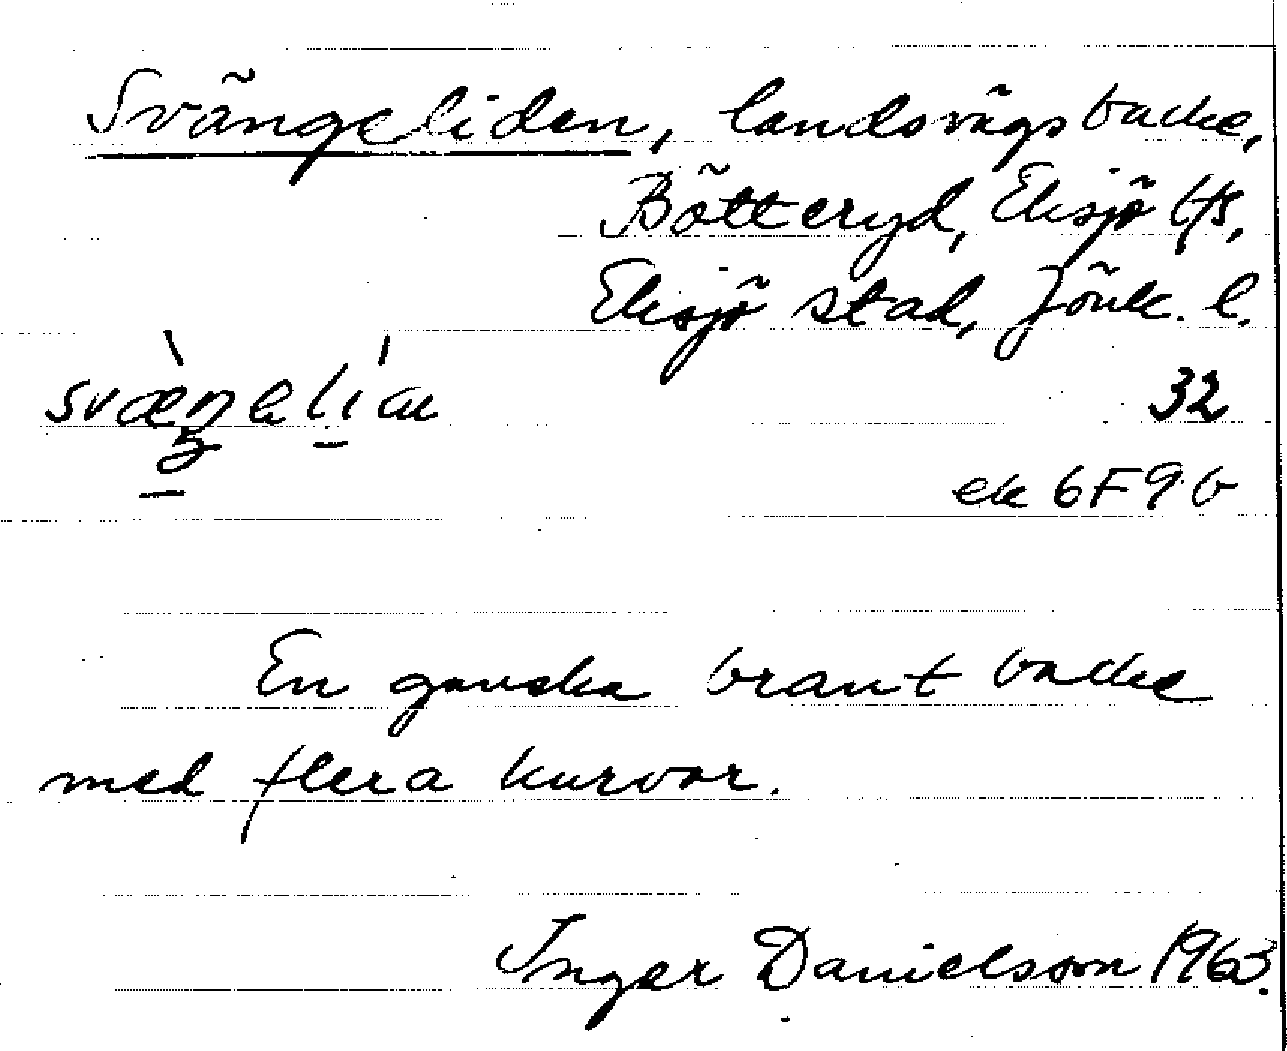 Svängeliden, landsvägsbacke,
Bötteryd, Eksjö lfs,
Eksjö stad, Jönk. l.
32
ek 6F9b
En ganska brant backe
med flera kurvor.
Inger Danielsson 1963.